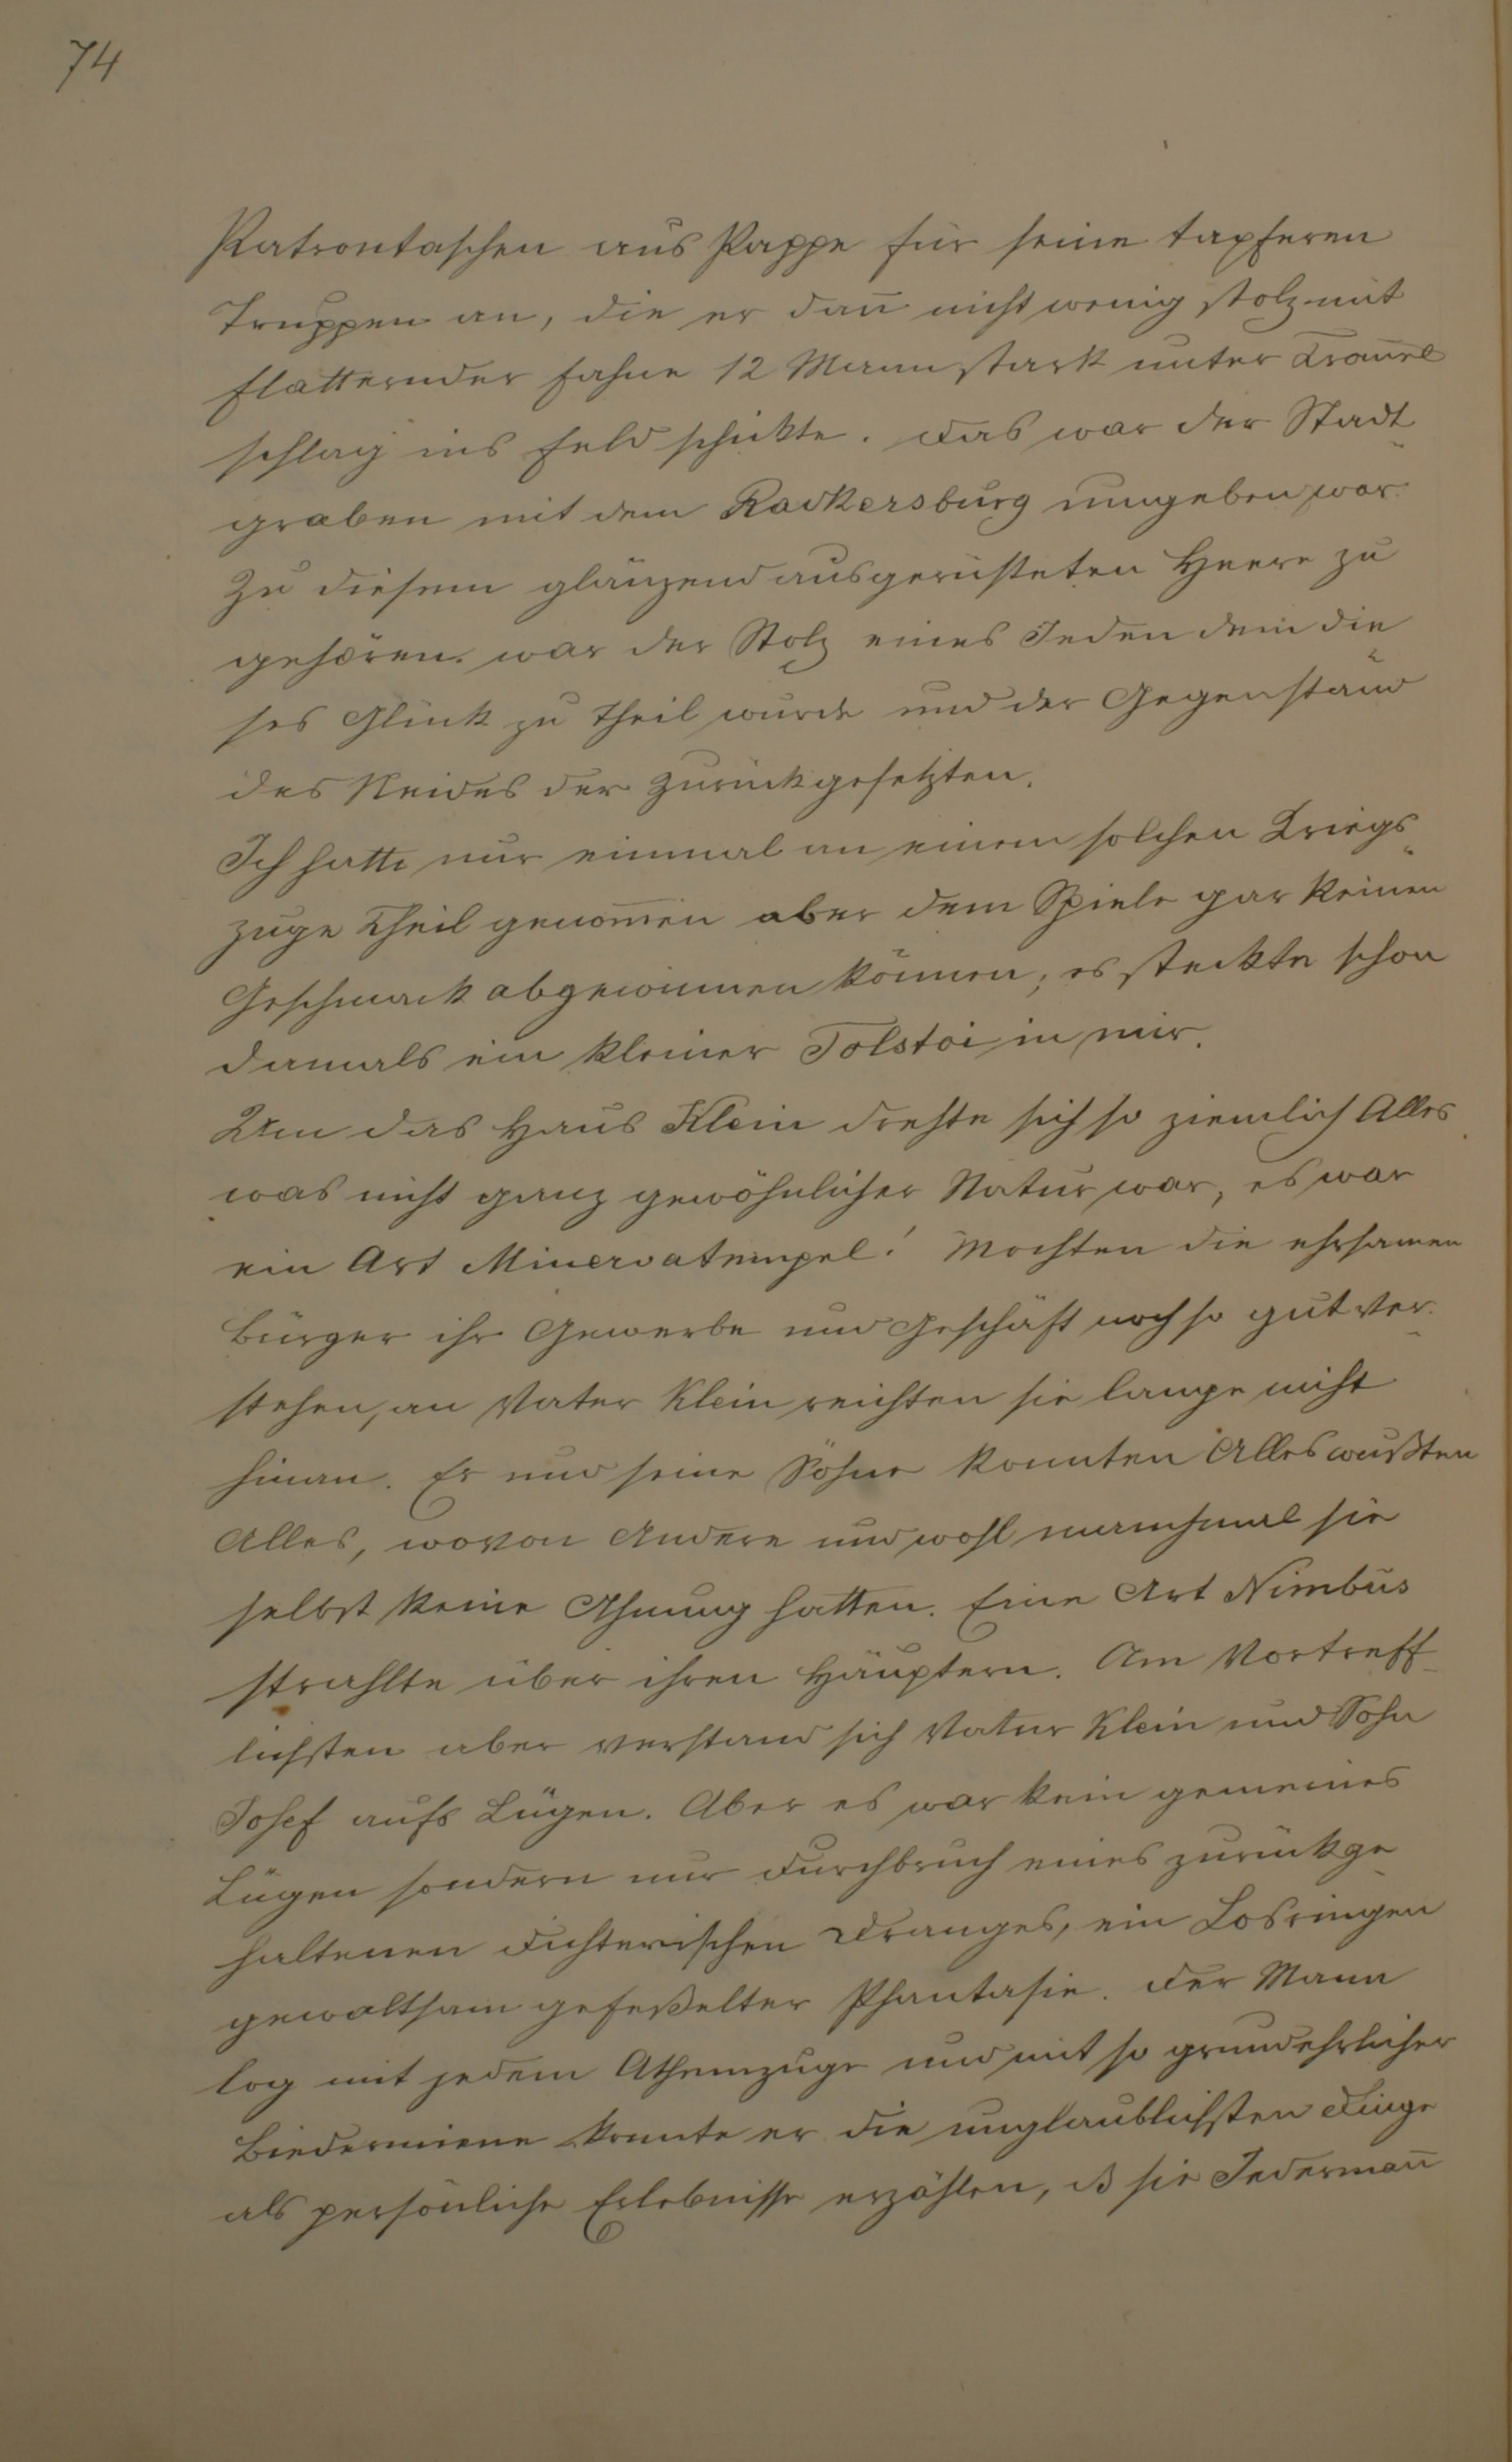 74
Patrontaschen aus Pappe für seine tapferen
Truppen an, die er dan̄ nicht wenig stolz mit
flatternder Fahne 12 Mann stark unter Trom̄el
schlag ins Feld schickte. Das war der Stadt-
graben mit dem Radkersburg umgeben war.
Zu diesem glänzend ausgerüsteten Heere zu
gehören war der Stolz eines Jeden dem die-
ses Glück zu Theil wurde und der Gegenstand
des Neides der Zurückgesetzten.
Ich hatte nur einmal an einem solchen Kriegs-
zuge Theil genom̄en aber dem Spiele gar keinen
Geschmack abgewinnen können; es steckte schon
damals ein kleiner Tolstoi in mir.
Um das Haus Klein drehte sich so ziemlich Alles
was nicht ganz gewöhnlicher Natur war, es war
ein Art Minervatempel! Mochten die ehrsamen
Bürger ihr Gewerbe und Geschäft noch so gut ver-
stehen, an Vater Klein reichten sie lange nicht
hinan. Er und seine Söhne konnten Alles wußten
Alles, wovon Andere und wohl manchmal sie
selbst keine Ahnung hatten. Eine Art Nimbus
strahlte über ihren Häuptern. Am Vortreff-
lichsten aber verstand sich Vater Klein und Sohn
Josef aufs Lügen. Aber es war kein gemeines
Lügen sondern nur Durchbruch eines zurückge-
haltenen dichterischen Dranges, ein Losringen
gewaltsam gefeßelter Phantasie. Der Mann
log mit jedem Athemzuge und mit so grundehrlicher
Biedermiene konnte er die unglaublichsten Dinge
als persönliche Erlebnisse erzählen, dß sie Jederman̄